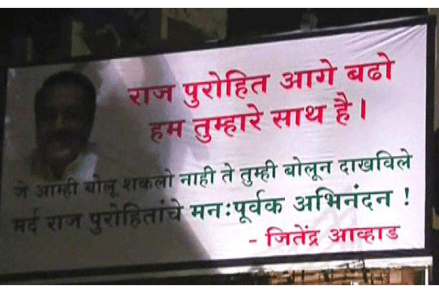 राज पुरोहित आगे बढो
हम तुम्हारे साथ है।
जे आम्ही बोलू शकलो नाही ते तुम्ही बोलून दाखविले
मर्द राज पुरोहितांचे मनःपूर्वक अभिनंदन !
- जितेंद्र आव्हाड